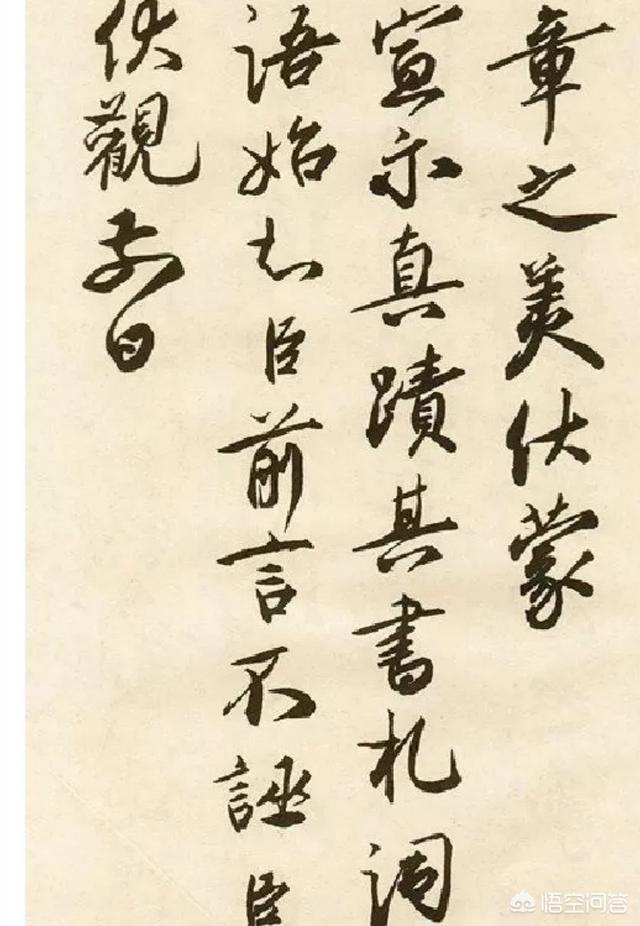 章之美伏蒙
宣示真蹟其書札詞
語始知臣前言不誣臣
伏觀日
悟空问答